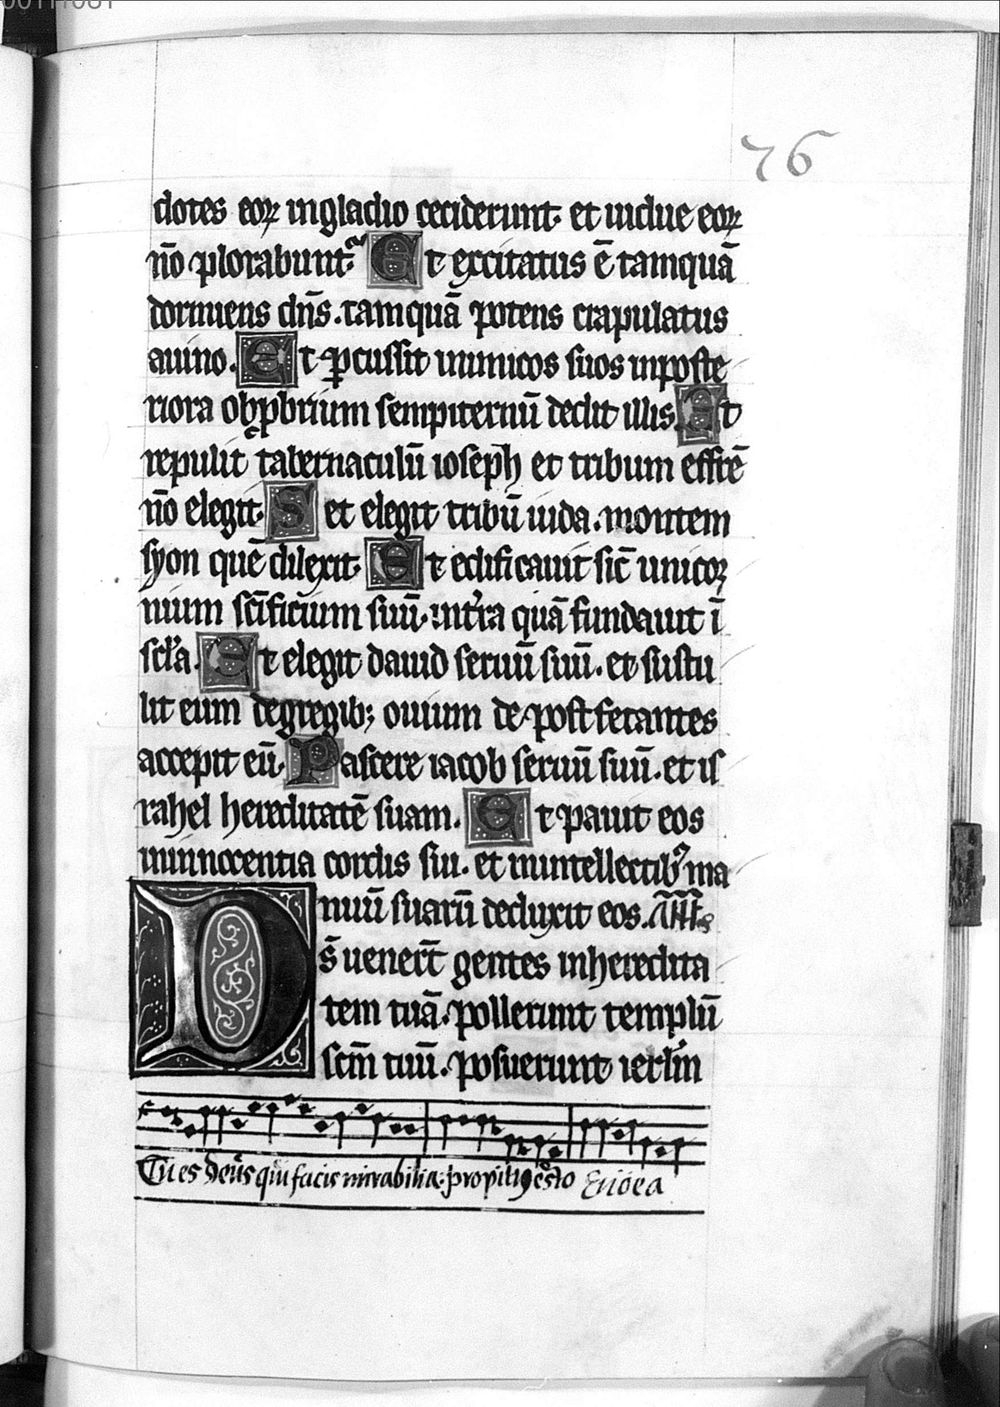 76
dotes eoꝝ ingladio ceciderunt· et uidue eoꝝ
nō plorabunt̉. Et excitatus ē tamquā
dormiens dn̄s. tamquā potens crapulatus
auino. Et ꝑcussit inimicos suos inposte
riora obꝓbrium sempiternū dedit illis. Et
repulit tabernaculū ioseph et tribum effrē
nō elegit· Set elegit tribū iuda. montem
syon quē dilexit· Et edificauit sic̄ unicoꝛ
nium sc̄ificium suū· int̉ra quā fundauit ī
scl̉a. Et elegit dauid seruū suū. et sustu
lit eum degregib; ouium de postfetantes
accepit eū· Pascere iacob seruū suū. et is
rahel hereditatē suam. Et pauit eos
ininnocentia cordis sui. et inintellectib᾽ ma
nuū suarū deduxit eos.
Ds̄ uener̄t gentes inheredita
tem tuā. pollerunt templū
sc̄m tuū. posuerunt ierl̄m
Tu es deūs qui facis mirabilia: propitiꝯ esto Euoea